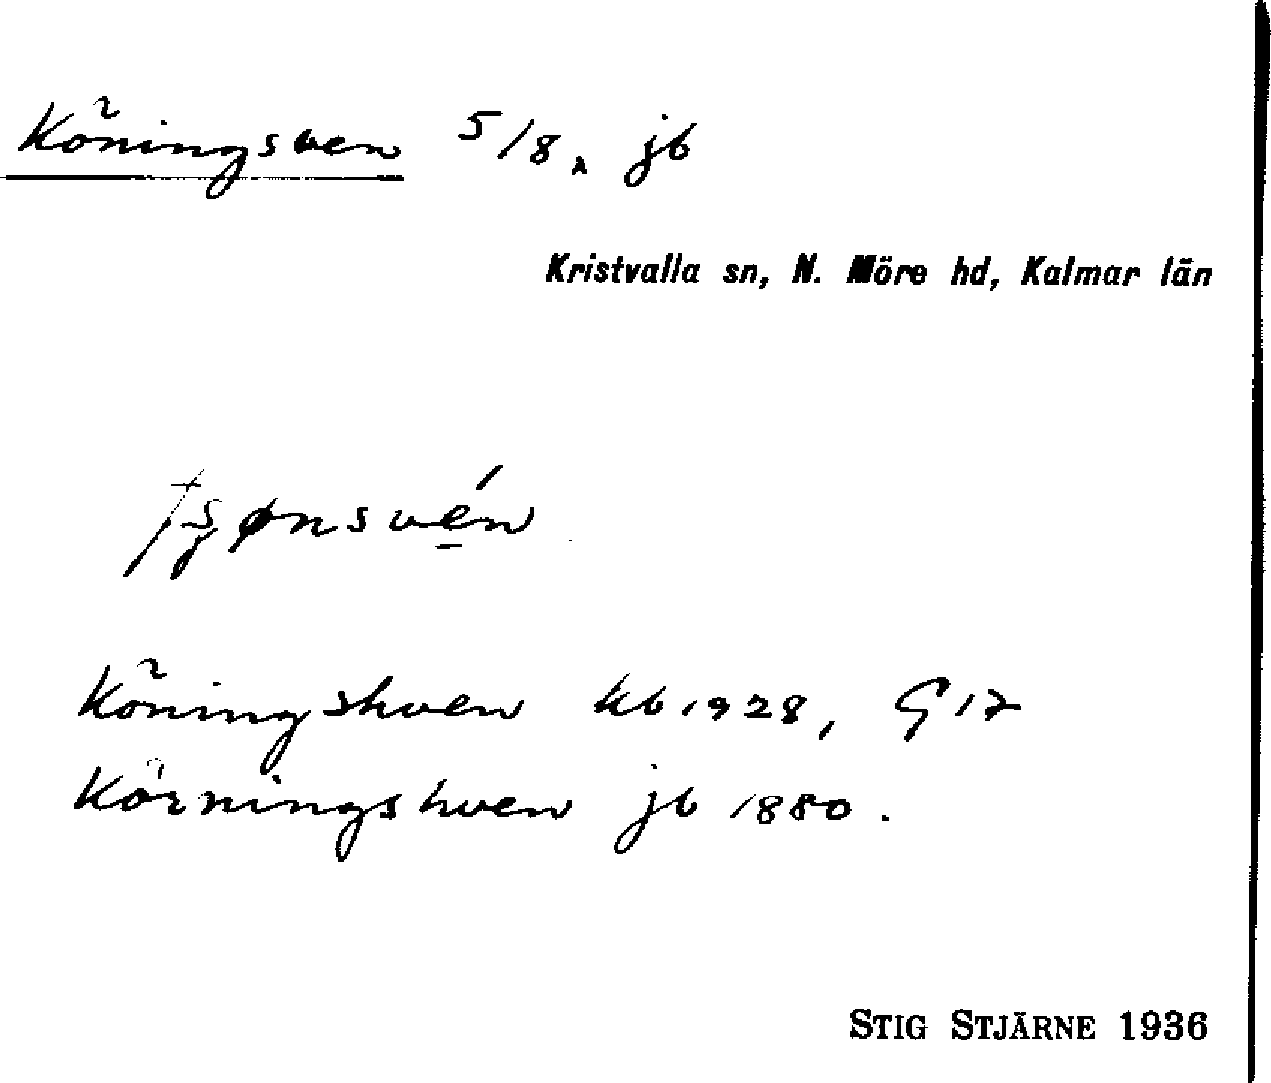 Köningsven 5/8, jb
Kristvalla sn, N. Möre hd, Kalmar län
Köningshven kb 1928, G 17
Körningshven jb 1880.
STIG STJÄRNE 1936